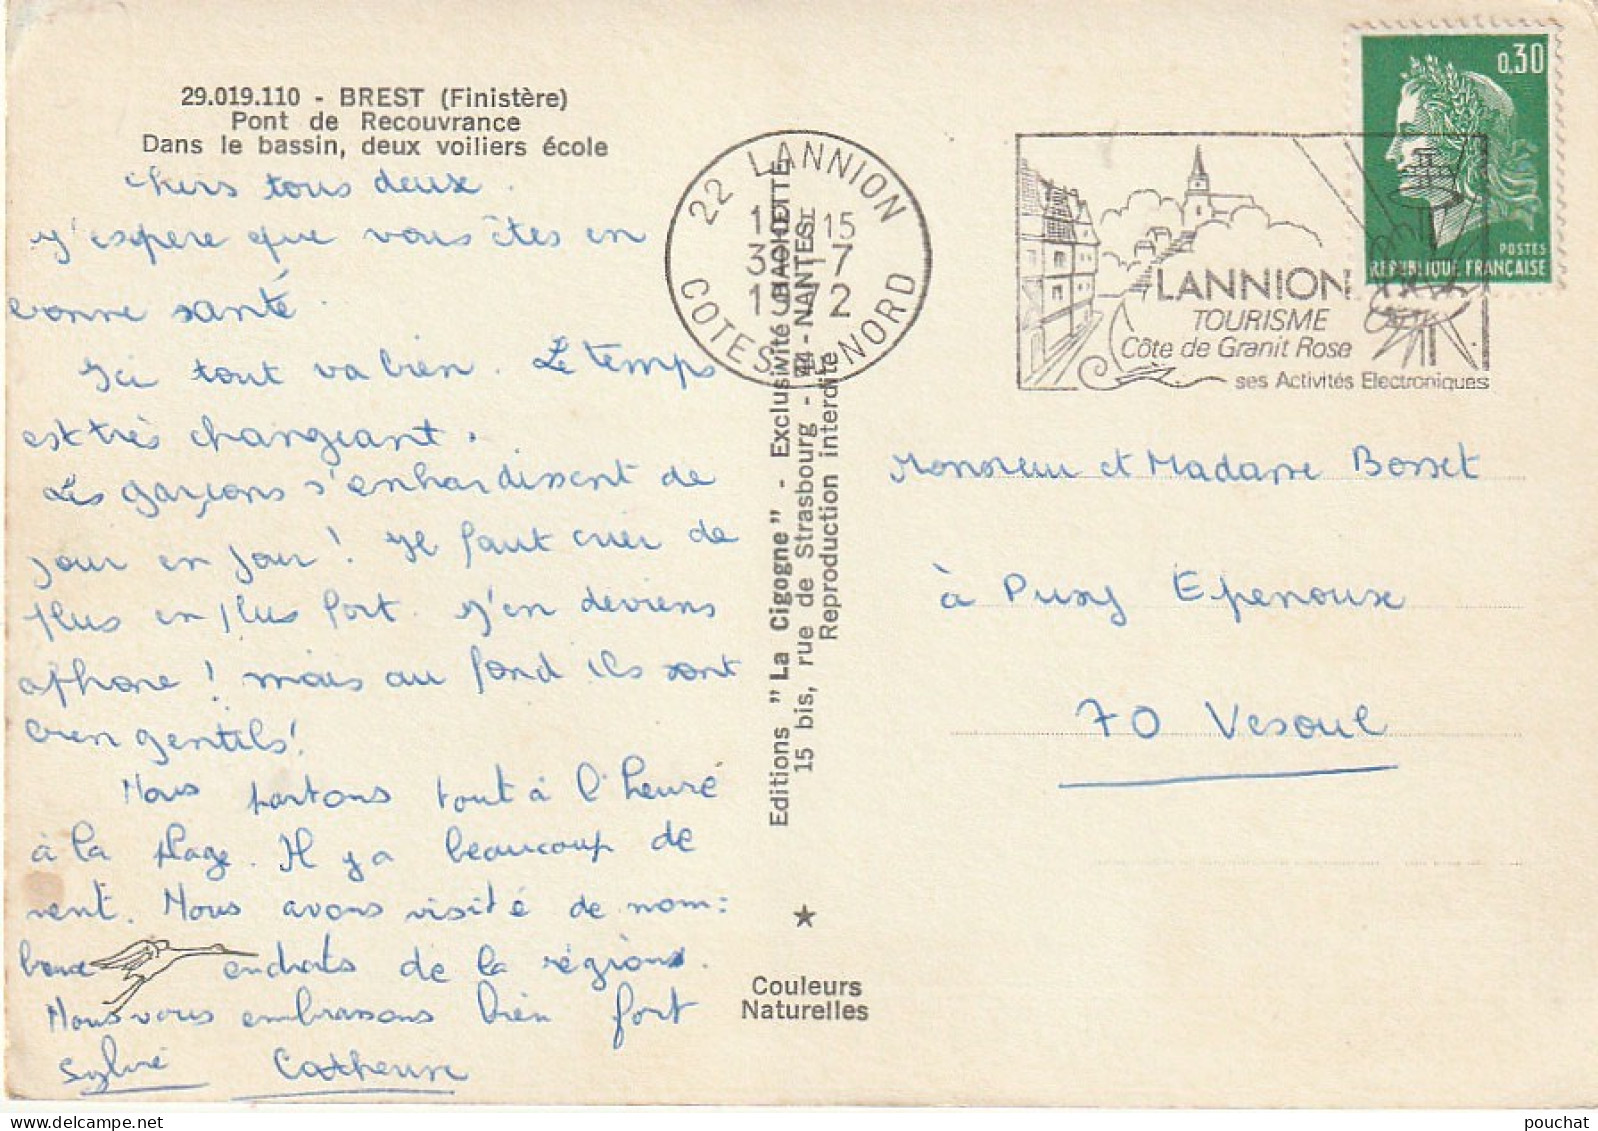 29.019.110 - BREST (Finistère)
Pont de Recouvrance
Dans le bassin, deux voiliers école
chers tous deux.
J'espère que vous êtes en
bonne santé.
Ici tout va bien. Le temps
est très changeant.
Les garçons s'enhardissent de
jour en jour! Il faut crier de
plus en plus fort. J'en deviens
aphone! mais au fond ils sont
bien gentils!
Nous partons tout à l'heure
à la plage. Il y a beaucoup de
vent. Nous avons visité de nom-
breux endroits de la région.
Nous vous embrassons bien fort
Sylvie Catherine
Editions "La Cigogne" - Exclusivité HACHETTE
15 bis, rue de Strasbourg - 44 - NANTES
Reproduction interdite
Couleurs
Naturelles
22 LANNION
15
-7
1972
COTES DU NORD
LANNION
TOURISME
Côte de Granit Rose
ses Activités Electroniques
0,30
POSTES
REPUBLIQUE FRANÇAISE
Monsieur et Madame Bosset
à Pusy Epenoux
70 Vesoul
pouchat